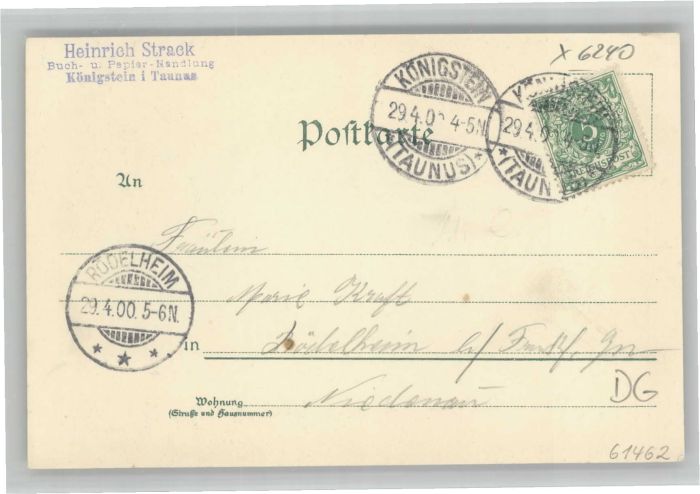 Heinrich Strack
Buch- u. Papier-Handlung
Königstein i Taunus
X 6240
KÖNIGSTEIN
29.4.0 4-5N.
(TAUNUS)
29.4.0
(TAUNUS)
5
REICHSPOST
Postkarte
An
Fräulein
RÖDELHEIM
29.4.00. 5-6N.
Marie Kraft
in Rödelheim b/ Frankf.
Niedenau
Wohnung
(Straße und Hausnummer)
DG
61462